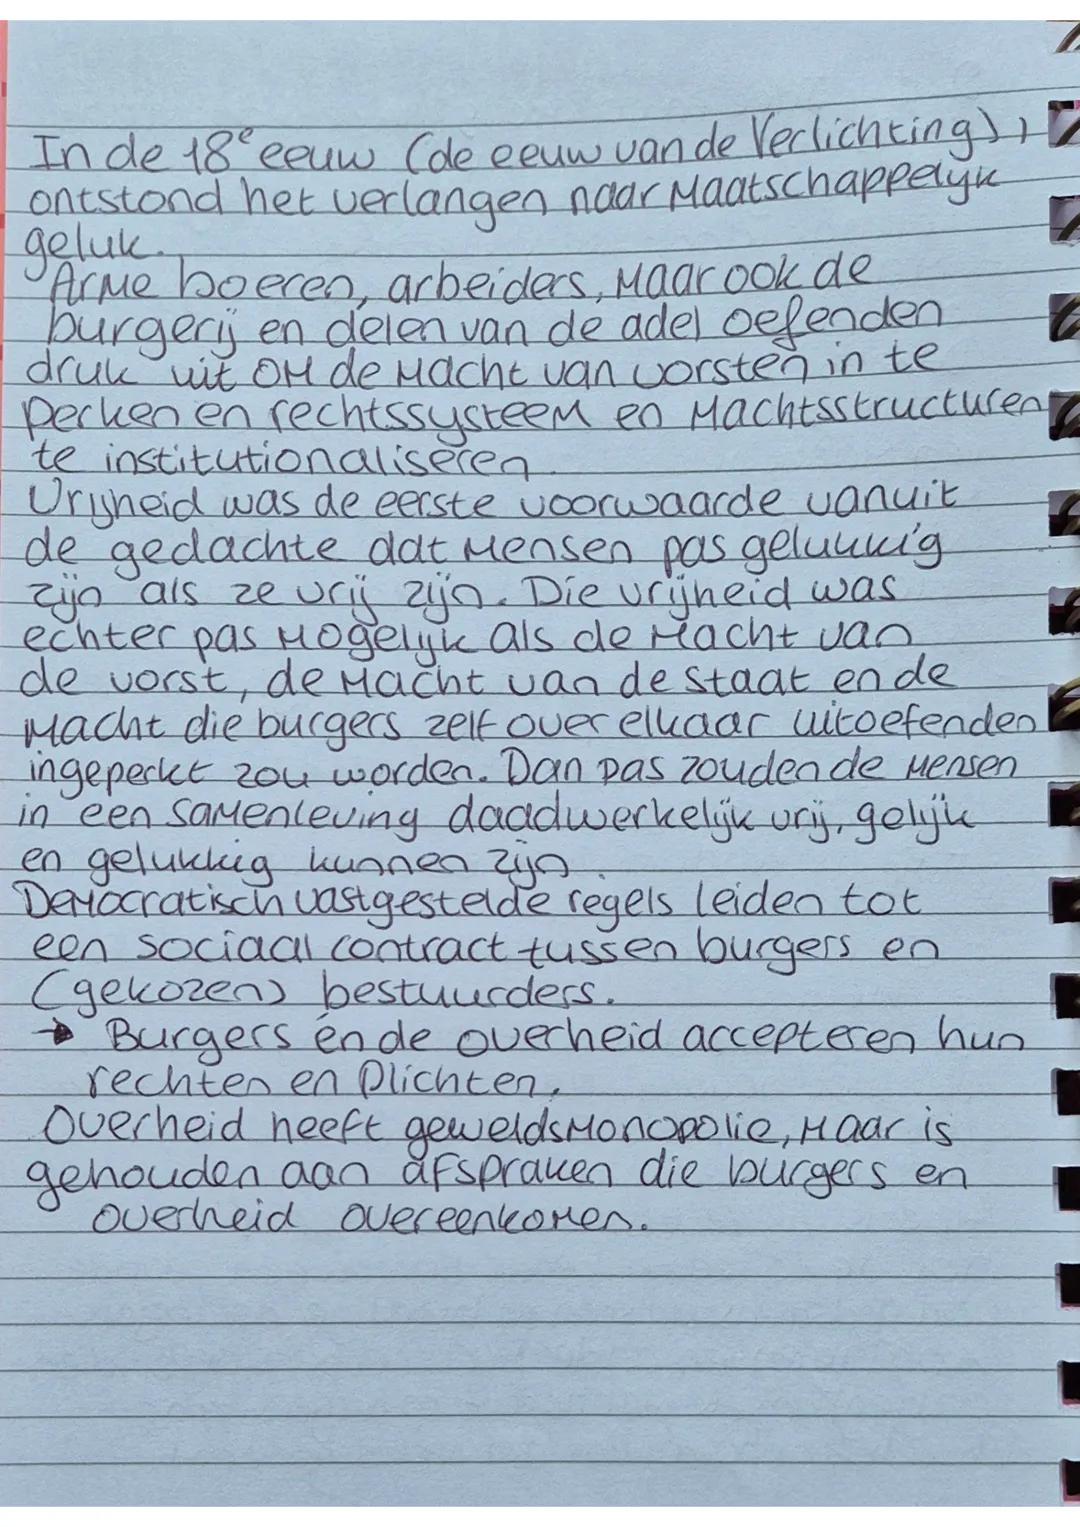 In de 18e eeuw (de eeuw van de Verlichting),
ontstond het verlangen naar maatschappelijk
geluk.
Arme boeren, arbeiders, maar ook de
burgerij en delen van de adel oefenden
druk uit om de macht van vorsten in te
perken en rechtssysteem en machtsstructuren
te institutionaliseren
Vrijheid was de eerste voorwaarde vanuit
de gedachte dat mensen pas gelukkig
zijn als ze vrij zijn. Die vrijheid was
echter pas mogelijk als de macht van
de vorst, de macht van de staat en de
macht die burgers zelf over elkaar uitoefenden
ingeperkt zou worden. Dan pas zouden de mensen
in een samenleving daadwerkelijk vrij, gelijk
en gelukkig kunnen zijn.
Democratisch vastgestelde regels leiden tot
een sociaal contract tussen burgers en
(gekozen) bestuurders.
→ Burgers én de overheid accepteren hun
rechten en plichten.
Overheid heeft geweldsmonopolie, maar is
gehouden aan afspraken die burgers en
overheid overeenkomen.